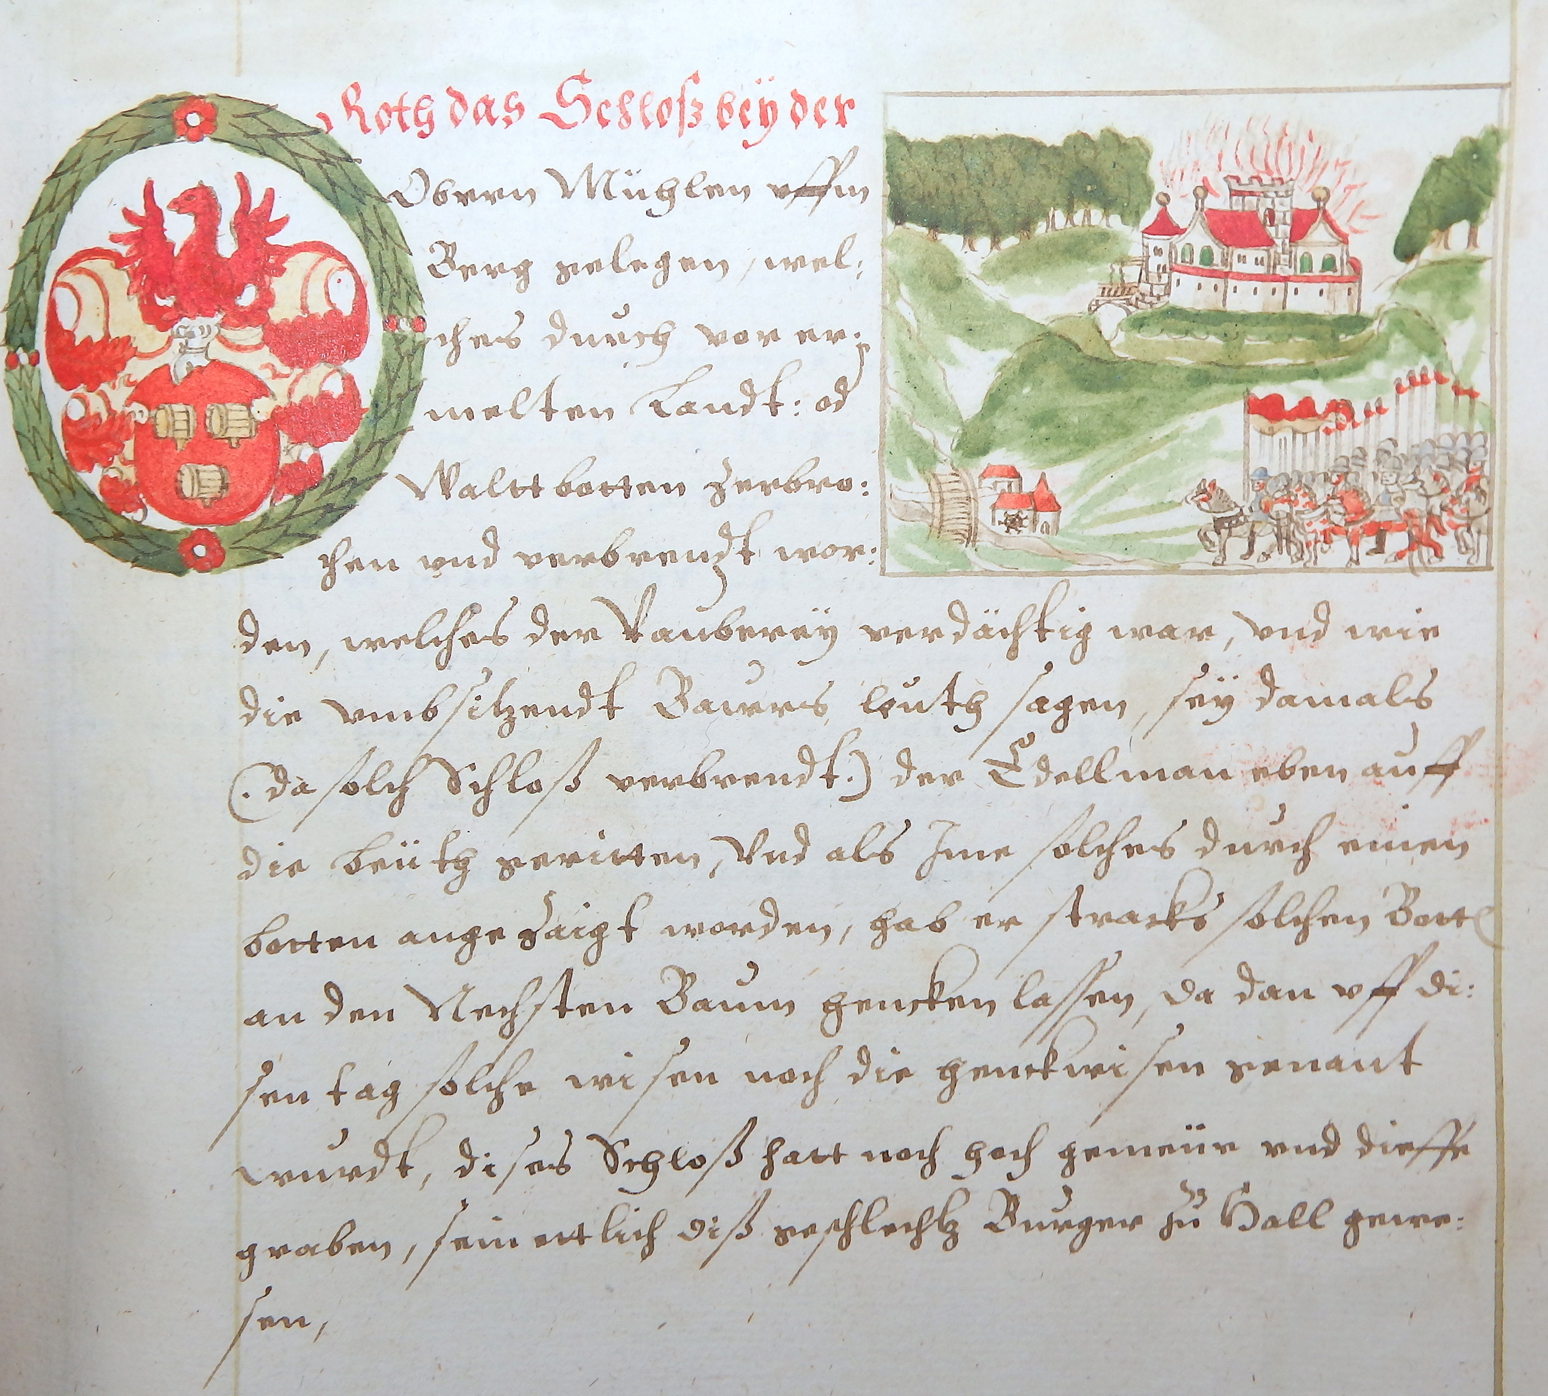 Roth das Schloß beÿ der
Obern Mühlen vffm
Berg gelegen, wel:
ches durch vor er:
melten Landt: od
Waltt botten zerbro:
chen vnd verbrendt wor:
den, welches der Raubereÿ verdächtig war, vnd wie
die vmbsitzendt Baurs leuth sagen, seÿ damals
(: da solch Schloß verbrendt :) der Edellman eben auff
die beüth geritten, Vnd als Ime solches durch einen
botten angezaigt worden, hab er stracks solchen Bott
an den Nechsten Baum hencken lassen, da dan vff di:
sen tag solche wisen noch die henckwisen genant
wurdt, dises Schloß hatt noch hoch gemeür vnd dieffe
graben, sein ettlich diß geschlechtz Burger zu Hall gewe:
sen,